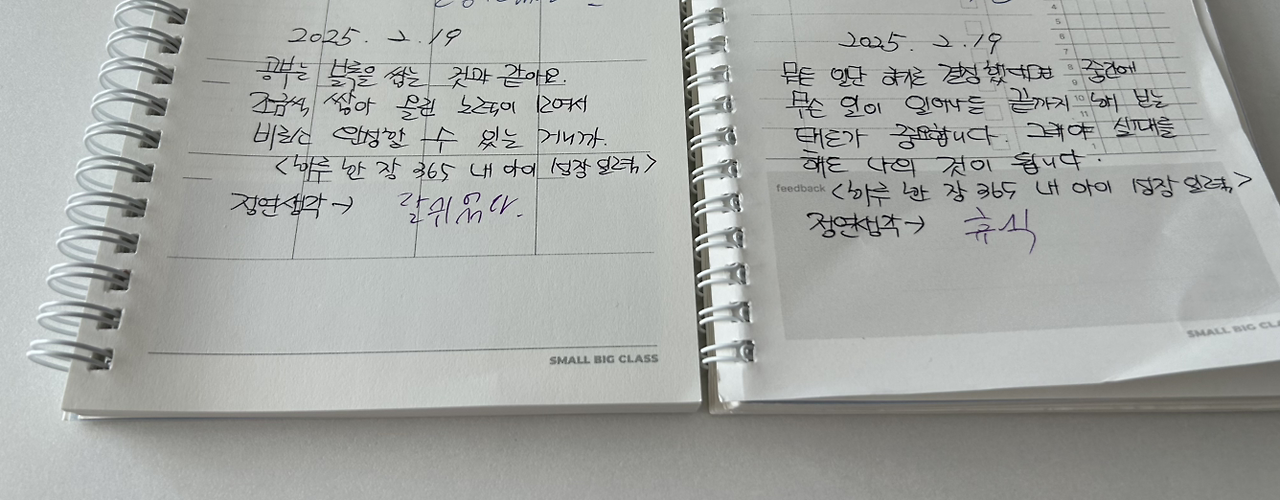 2025. 2. 19
공부는 블록을 쌓는 것과 같아요.
조금씩 쌓아 올린 노력이 모여서
비로소 완성할 수 있는 거니까.
<하루 한 장 365 내 아이 성장 일력>
정연생각→
SMALL BIG CLASS
4
5
6
7
8
9
10
11
1
2025. 2. 19
무슨 일단 하기로 결정했다면 중간에
무슨 일이 일어나든 끝까지 해 보는
태도가 중요합니다. 그래야 실패를
해도 나의 것이 됩니다.
feedback
<하루 한 장 365 내 아이 성장 일력>
정연생각→ 휴식
SMALL BIG CLA